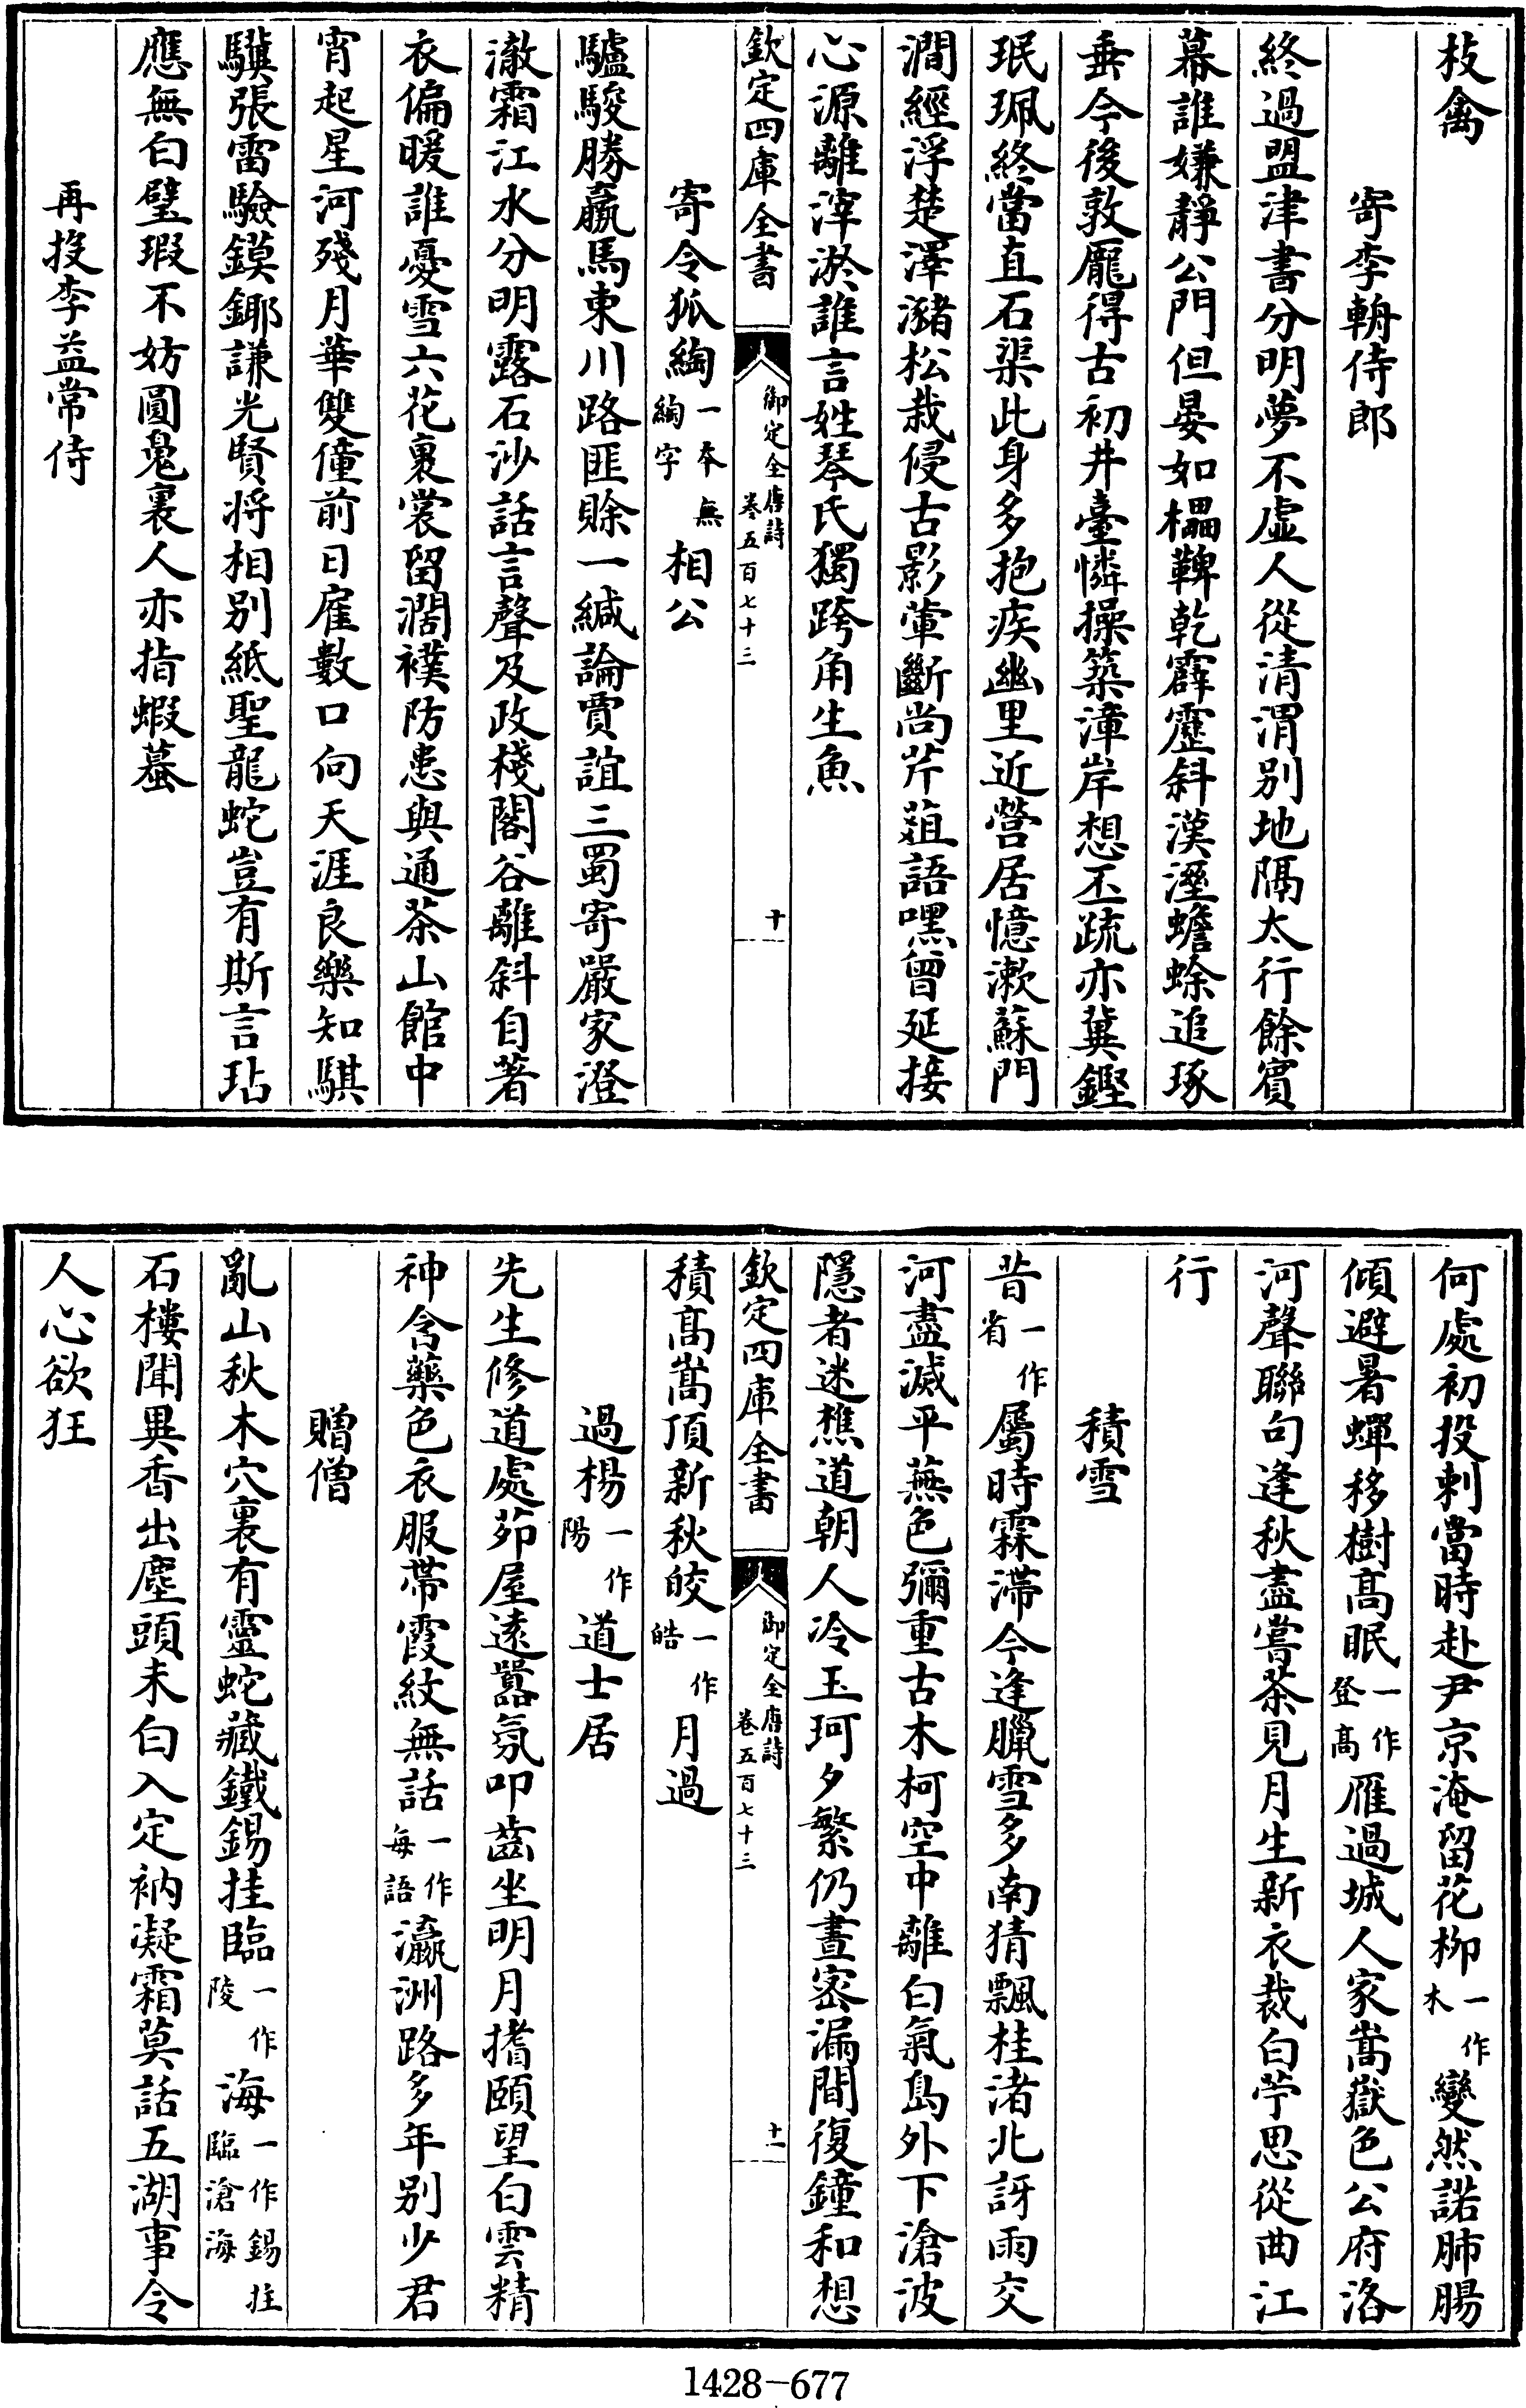 枝禽
寄李輈侍郎
終過盟津書分明夢不虛人從清渭别地隔太行餘賓
幕誰嫌靜公門但晏如櫑鞞乾霹靂斜漢溼蟾蜍追琢
垂今後敦龎得古初井臺憐操築漳岸想丕疏亦冀鏗
珉珮終當直石渠此身多抱疾幽里近營居憶漱蘇門
澗經浮楚澤瀦松栽侵古影葷斷尚芹葅語嘿曾延接
心源離滓淤誰言姓琴氏獨跨角生魚
欽定四庫全書 御定全唐詩卷五百七十三 十
寄令狐綯一本無綯字相公
驢駿勝羸馬東川路匪賖一緘論賈誼三蜀寄嚴家澄
澈霜江水分明露石沙話言聲及政棧閣谷離斜自著
衣偏暖誰憂雪六花裹裳留濶襆防患與通茶山館中
宵起星河殘月華雙僮前日雇數口向天涯良樂知騏
驥張雷驗鏌鋣謙光賢將相别紙聖龍蛇豈有斯言玷
應無白璧瑕不妨圓魄裏人亦指蝦蟇
再投李益常侍
何處初投刺當時赴尹京淹留花柳一作木變然諾肺腸
傾避暑蟬移樹高眠一作登高雁過城人家嵩嶽色公府洛
河聲聯句逢秋盡嘗茶見月生新衣裁白苧思從曲江
行
積雪
昔一作省屬時霖滯今逢臘雪多南猜飄桂渚北訝雨交
河盡滅平蕪色彌重古木柯空中離白氣島外下滄波
隱者迷樵道朝人冷玉珂夕繁仍晝密漏間復鐘和想
欽定四庫全書 御定全唐詩卷五百七十三 十一
積高嵩頂新秋皎一作皓月過
過楊一作陽道士居
先生修道處茆屋遠囂氛叩齒坐明月搘頤望白雲精
神含藥色衣服帶霞紋無話一作每語瀛洲路多年别少君
贈僧
亂山秋木穴裏有靈蛇藏鐵錫挂臨一作陵海一作錫挂臨滄海
石樓聞異香出塵頭未白入定衲凝霜莫話五湖事令
人心欲狂
1428-677